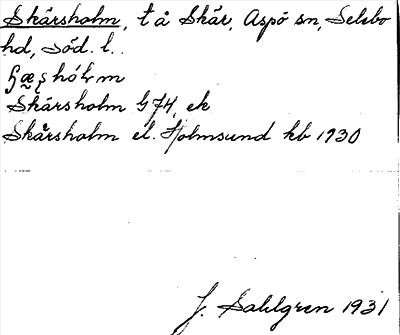 Skärsholm, t å Skär, Aspö sn, Selebo
hd, Söd. l.
Skärsholm G 74, ek
Skärsholm el. Holmsund kb 1930
J. Sahlgren 1931